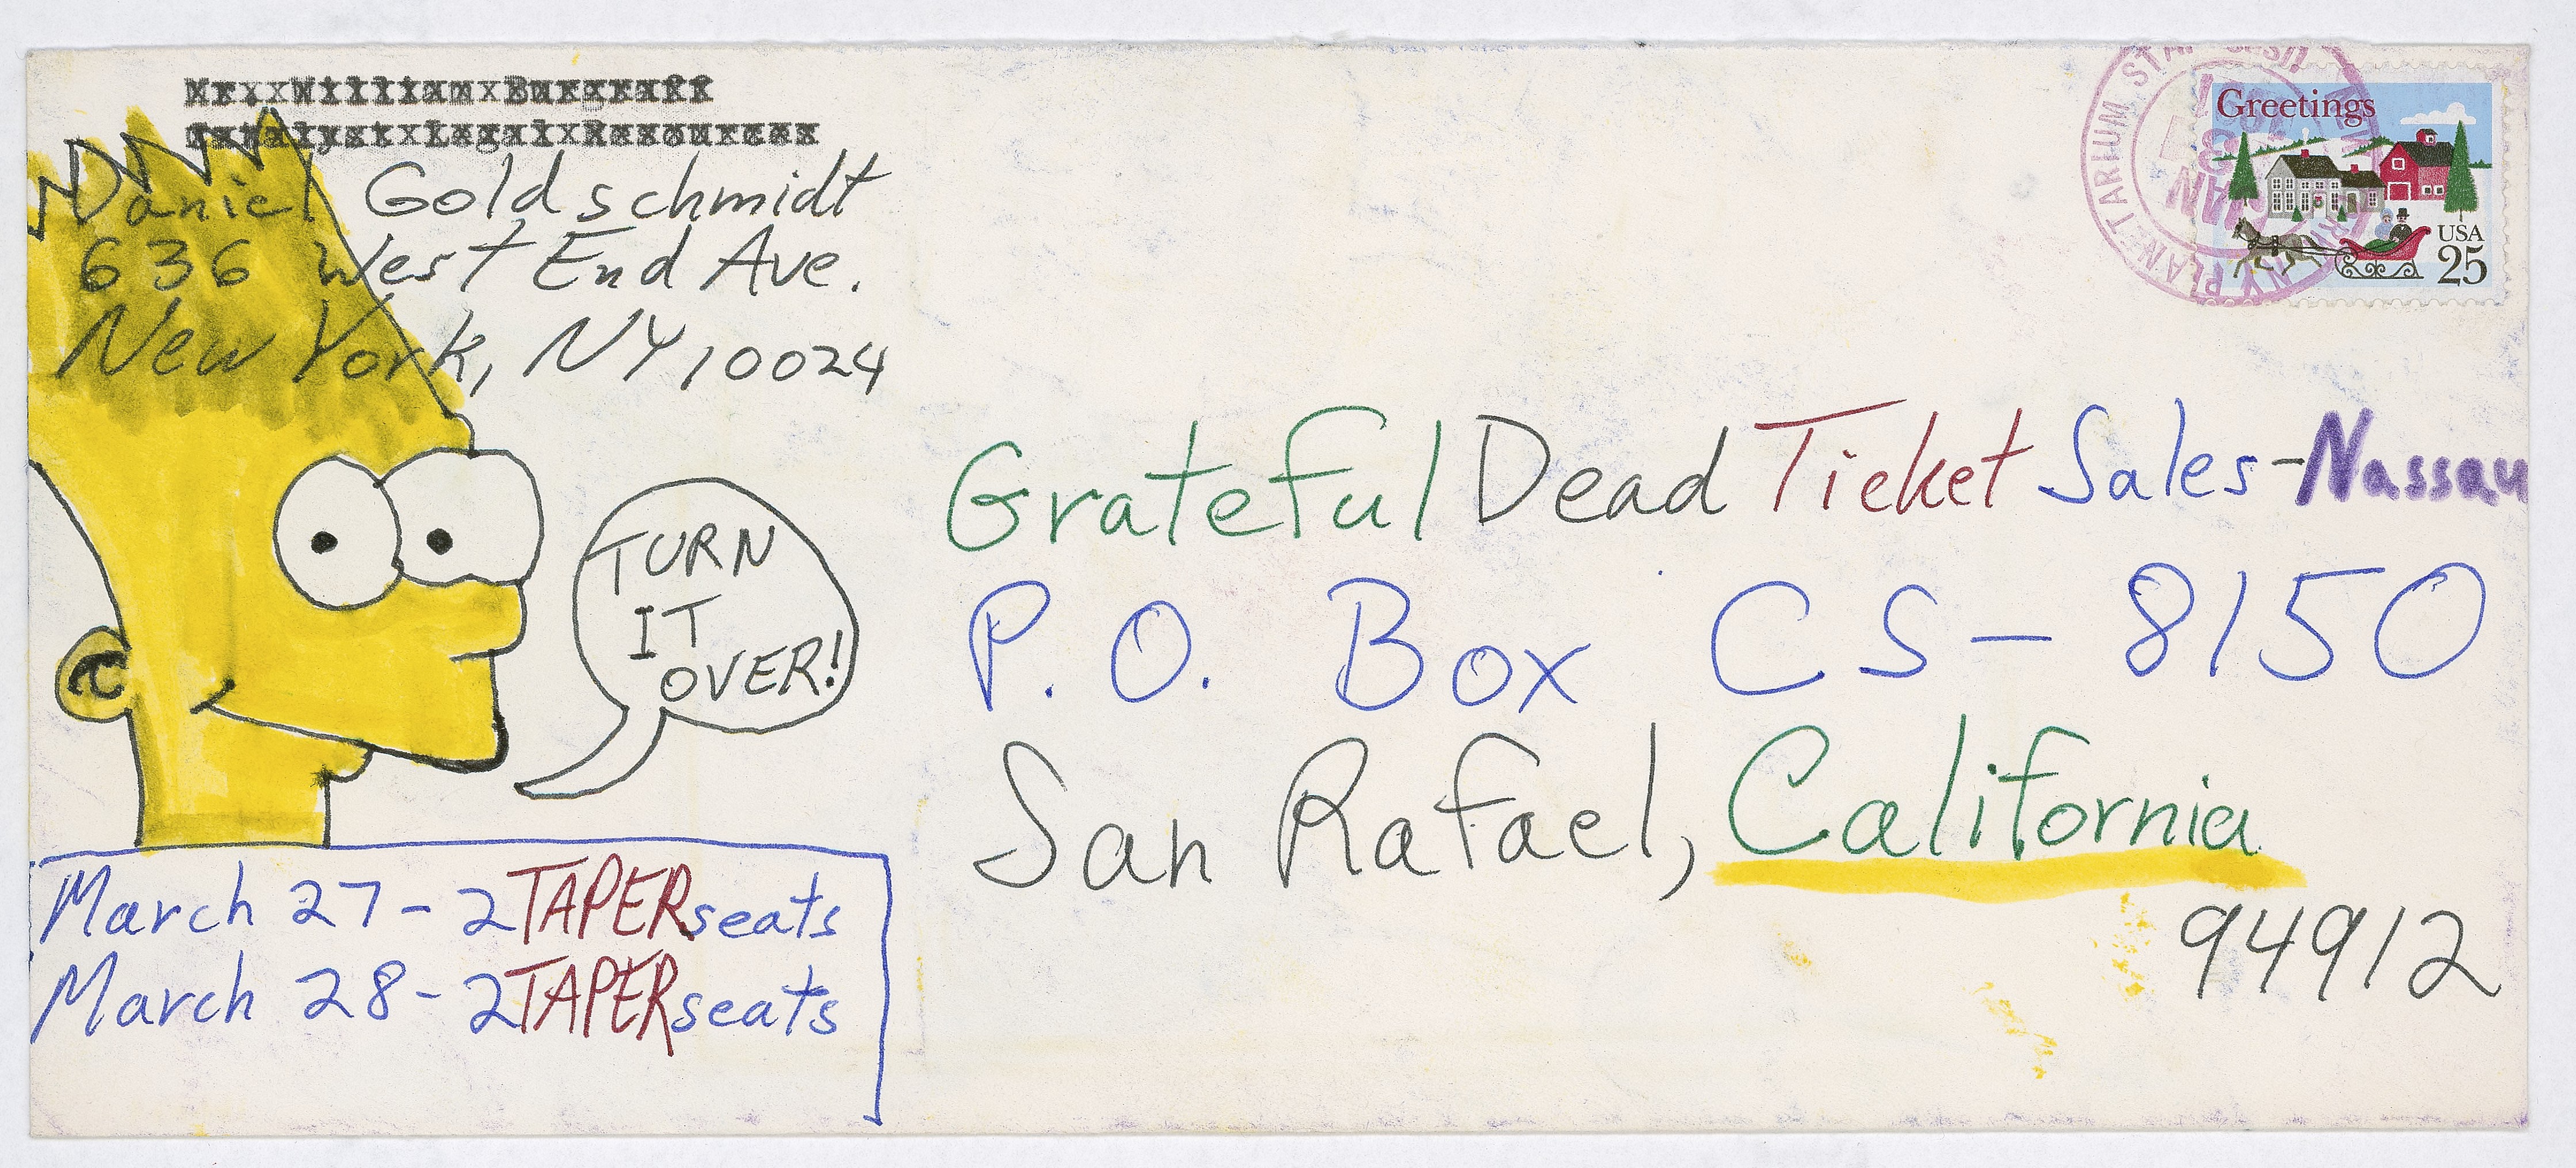 Daniel Goldschmidt
636 West End Ave.
New York, NY 10024
Greetings
USA
25
PLANETARIUM STA
NY
JAN
Grateful Dead Ticket Sales-Nassau
P.O. Box CS-8150
San Rafael, California
94912
TURN
IT
OVER!
March 27-2 TAPER seats
March 28-2 TAPER seats